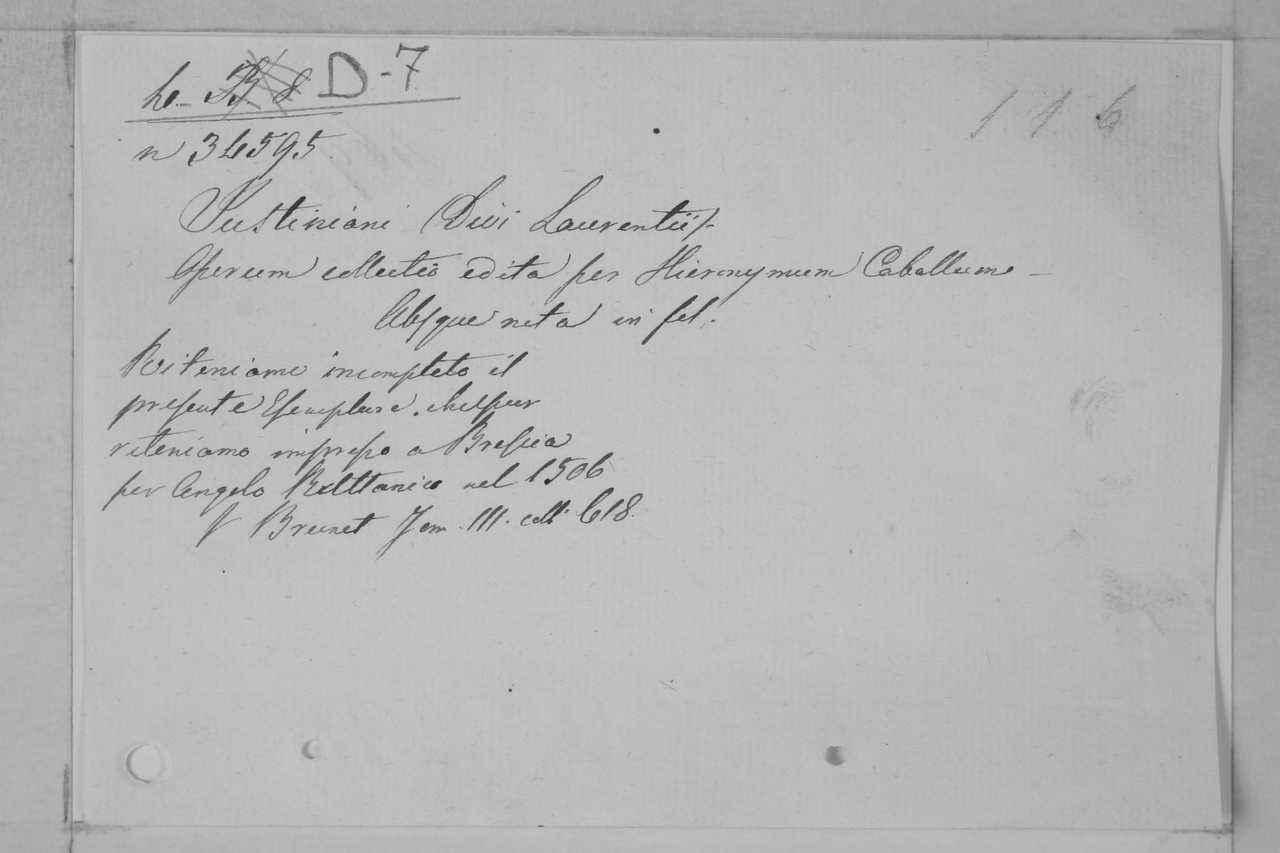 D-7
n 34595
Justiniani (Divi Laurentii)-
Operum collectio edita per Hieronymum Caballum -
Absque nota in fol.
Riteniamo incompleto il
presente Esemplare. che pur
riteniamo impresso a Brescia
per Angelo Brittanico nel 1506
V Brunet Tom. III. coll. 618.
116